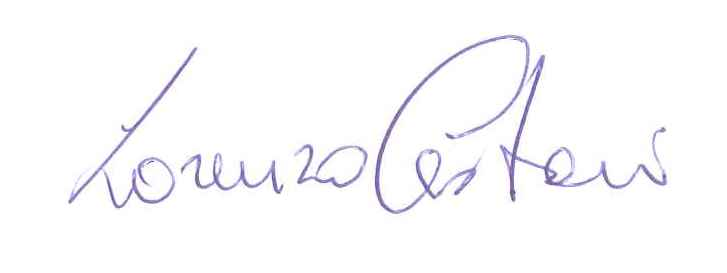 Lorenzo Cestari